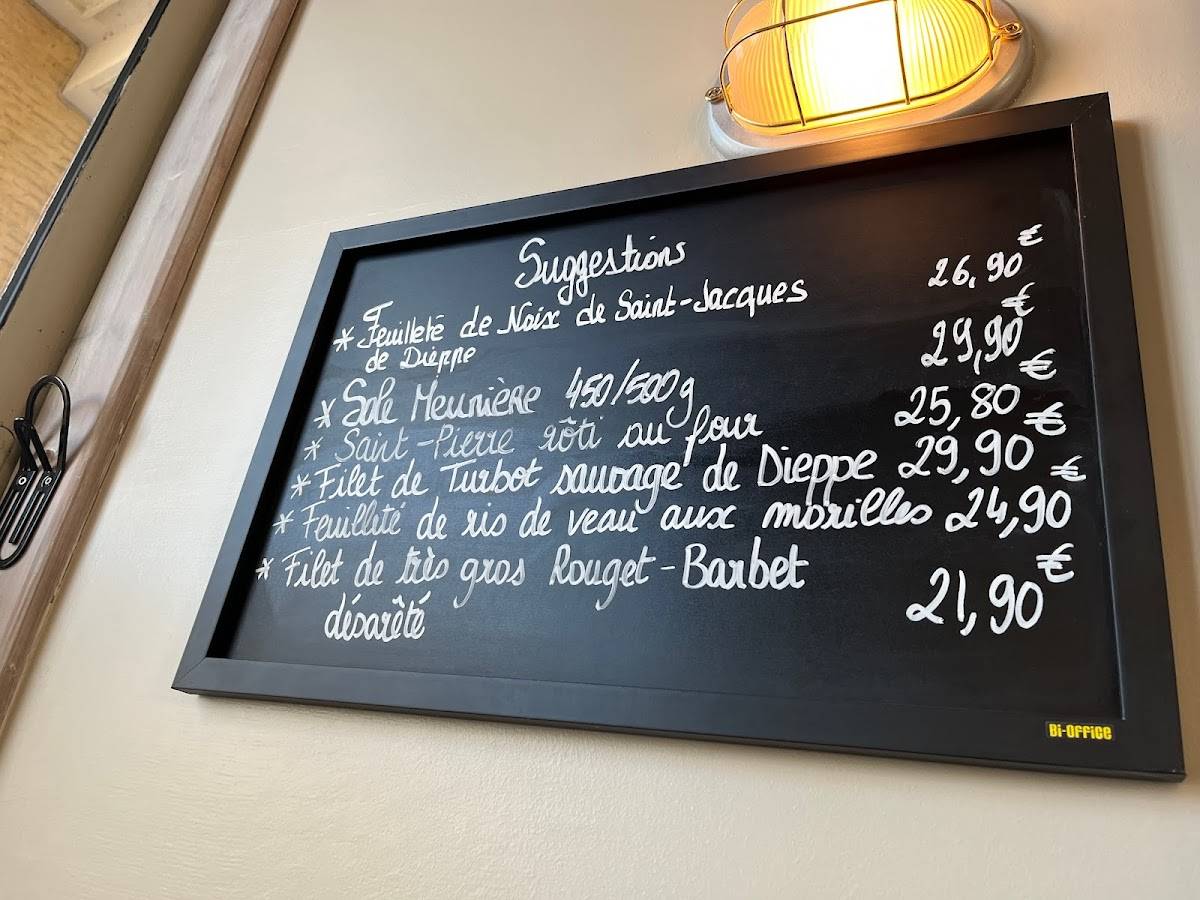 Suggestions
* Feuilleté de Noix de Saint-Jacques 26,90€
de Dieppe
* Sole Meunière 450/500g 29,90€
* Saint-Pierre rôti au four 25,80€
* Filet de Turbot sauvage de Dieppe 29,90€
* Feuilleté de ris de veau aux morilles 24,90€
* Filet de très gros Rouget-Barbet
désarêté 21,90€
Bi-Office